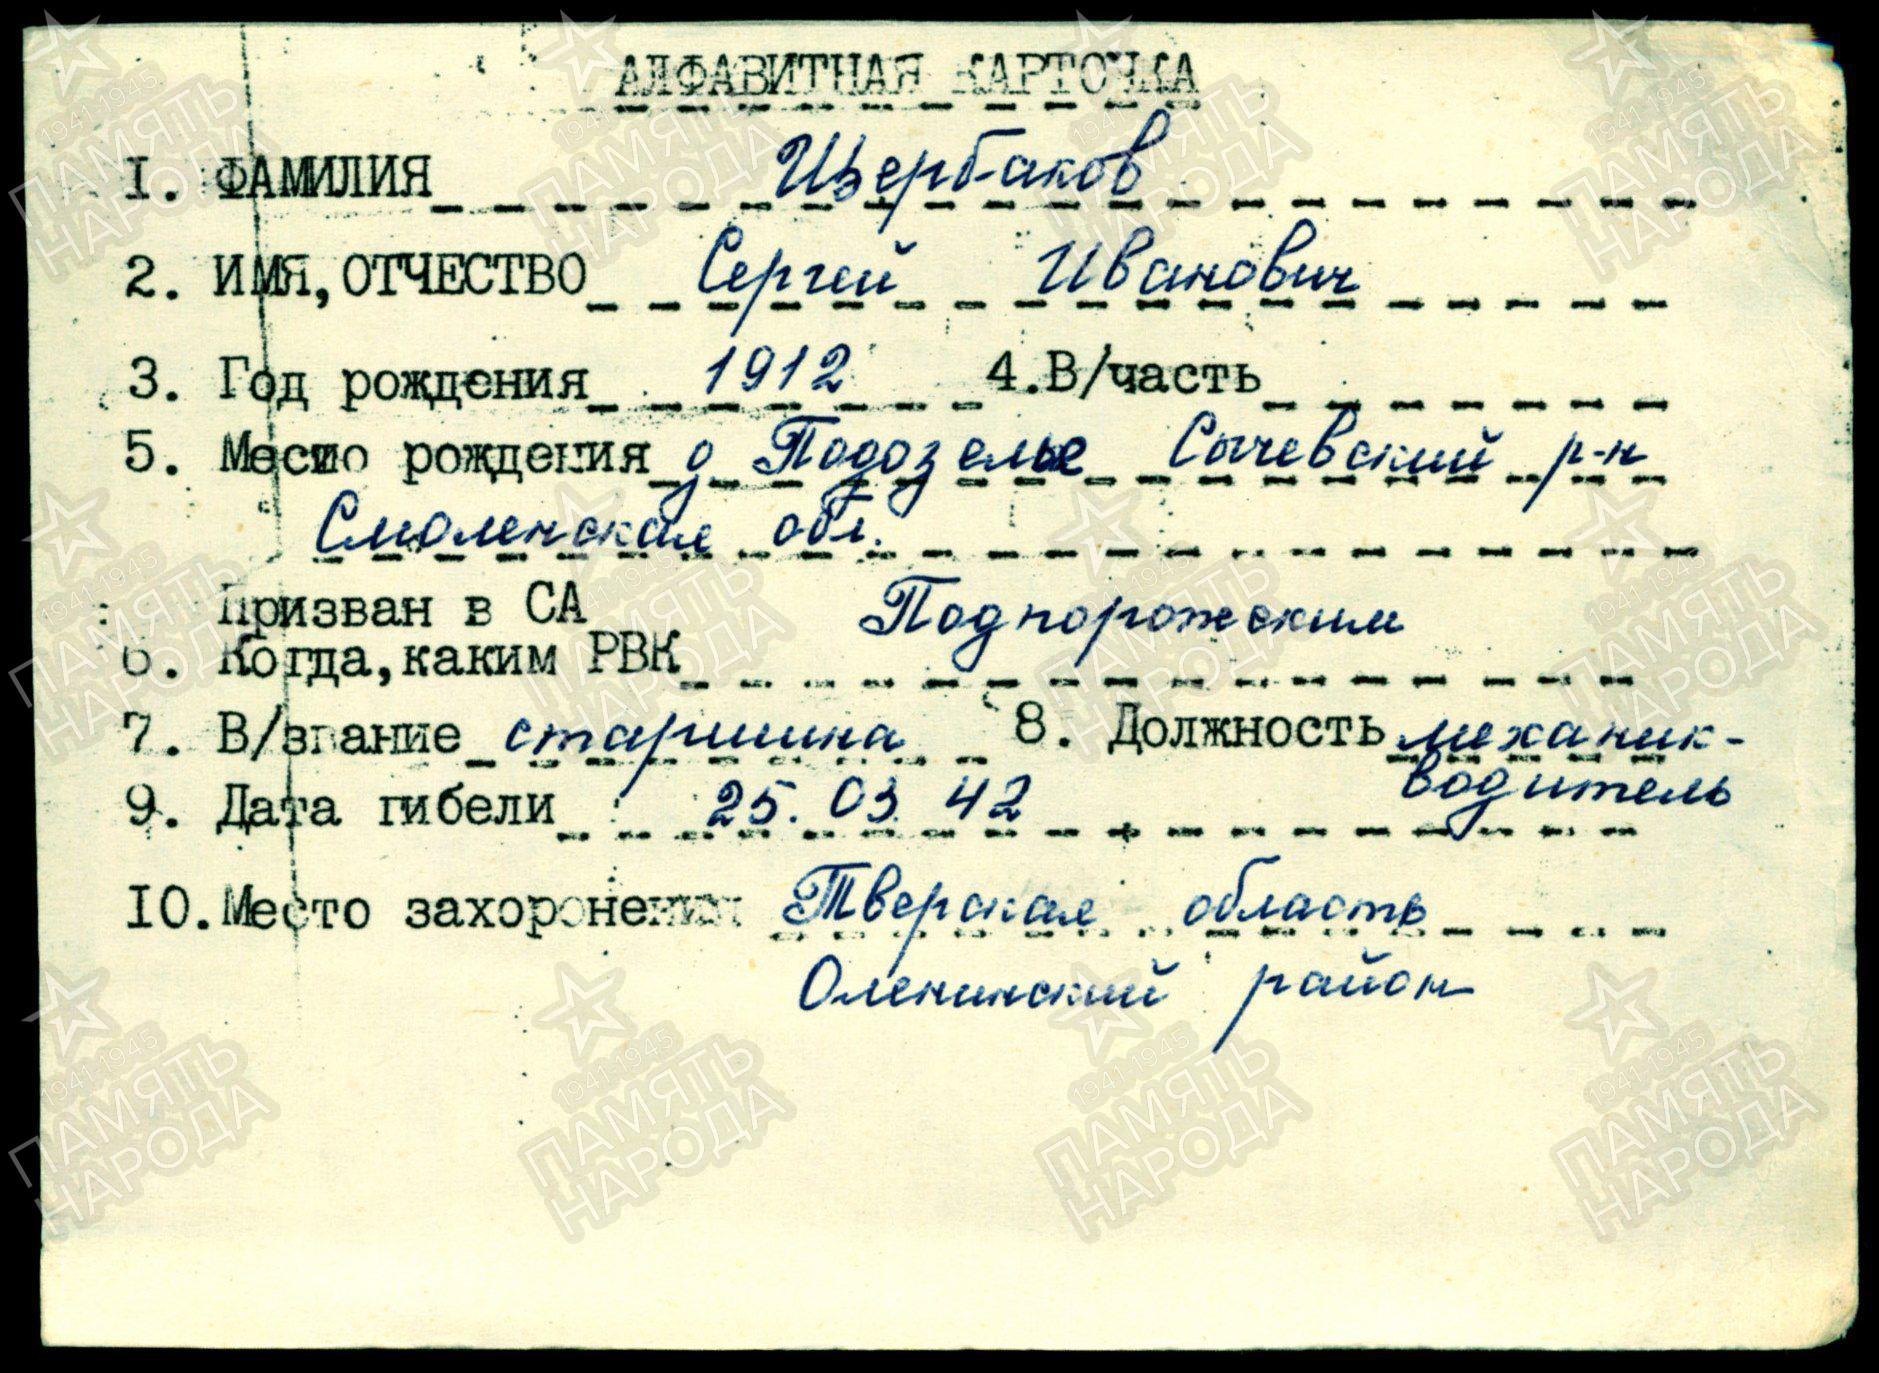 АЛФАВИТНАЯ КАРТОЧКА
1. ФАМИЛИЯ Щербаков
2. ИМЯ, ОТЧЕСТВО Сергей Иванович
3. Год рождения 1912 4. В/часть
5. Место рождения д Подозелье Сычевский р-н
Смоленская обл.
Призван в СА Подпорожским
6. Когда, каким РВК
7. В/звание старшина 8. Должность механик-
водитель
9. Дата гибели 25.03.42
10. Место захоронения Тверская область
Оленинский район
1941-1945
ПАМЯТЬ
НАРОДА